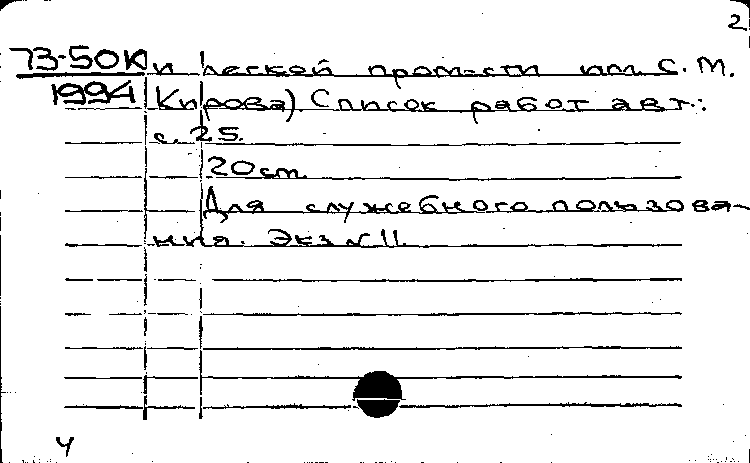 2
73-50К и ческой пром-сти им. С. М.
1994 Кирова). Список работ авт.:
с. 25.
20 см.
Для служебного пользова-
ния. Экз № 11.